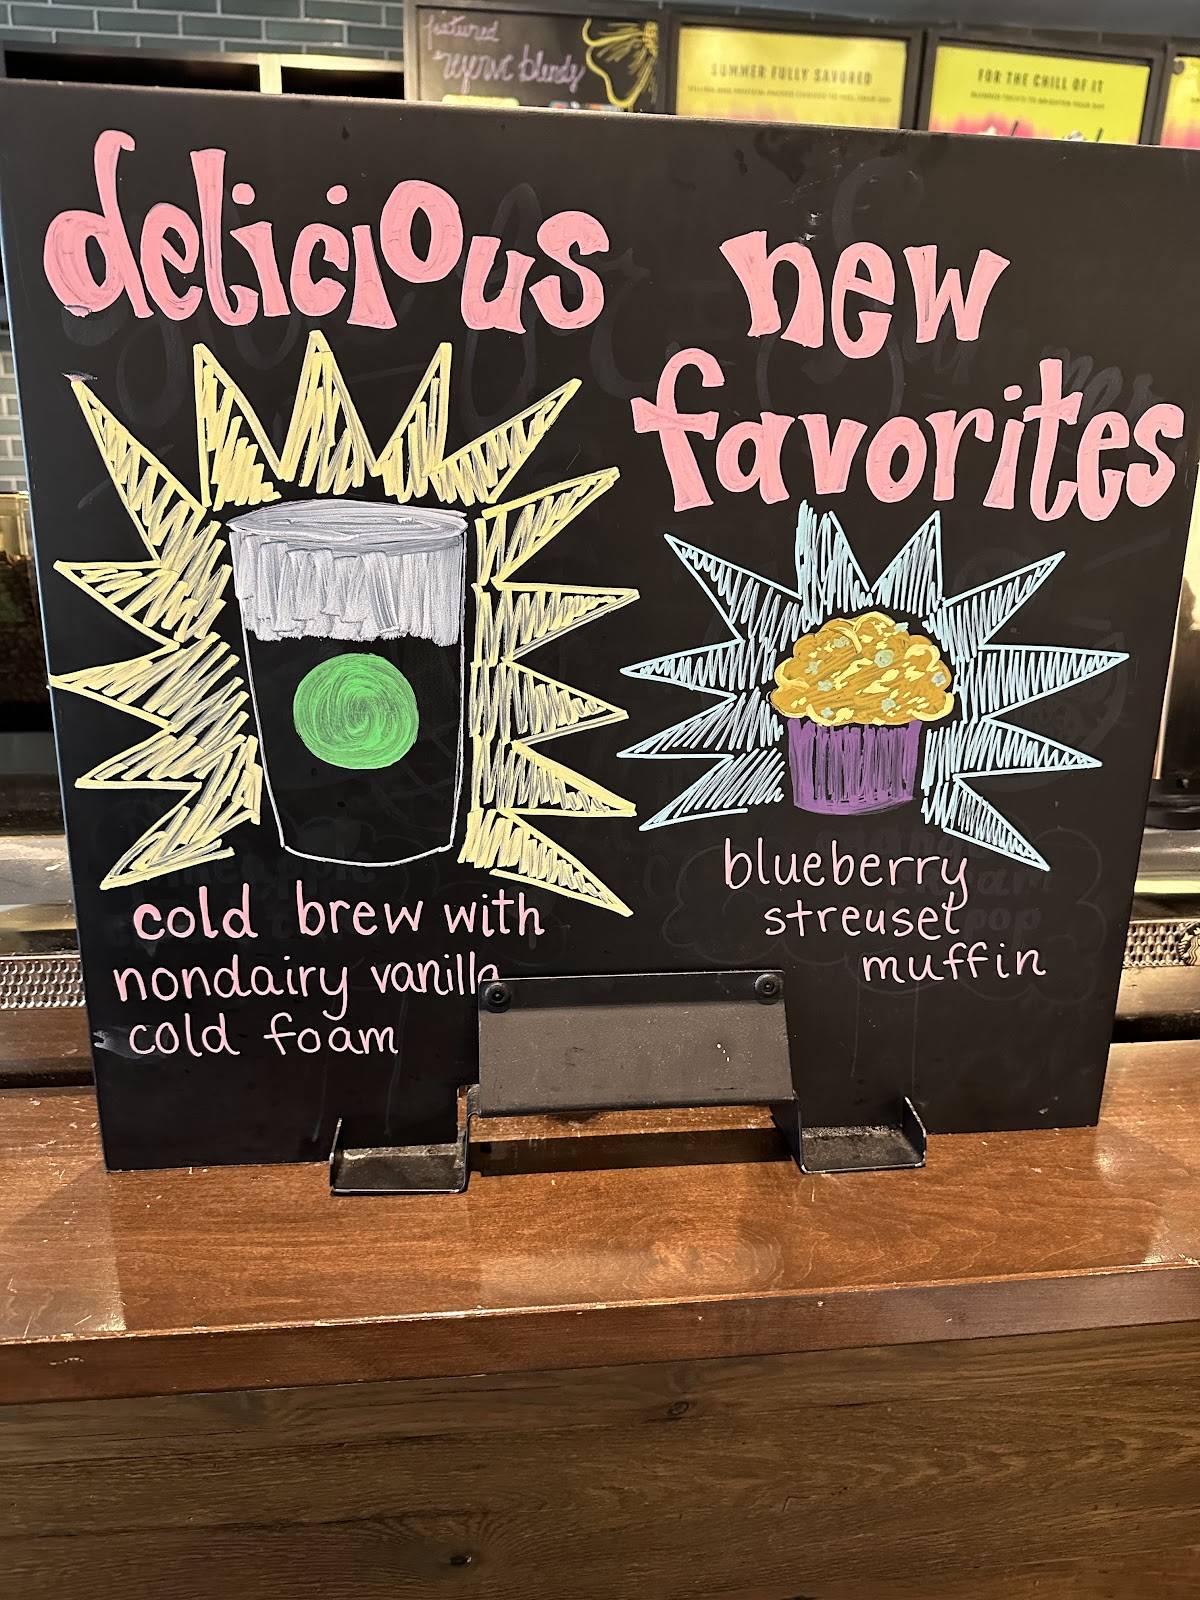 featured
reserve blends
SUMMER FULLY SAVORED
FOR THE CHILL OF IT
delicious
new
favorites
cold brew with
nondairy vanilla
cold foam
blueberry
streusel
muffin